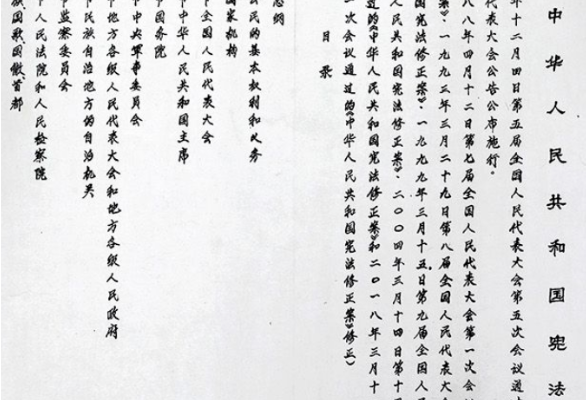 中华人民共和国宪法
年十二月四日第五届全国人民代表大会第五次会议通
代表大会公告公布施行。
八八年四月十二日第七届全国人民代表大会第一次会
案》、一九九三年三月二十九日第八届全国人民代表大会
国宪法修正案》、一九九九年三月十五日第九届全国人
人民共和国宪法修正案》、二〇〇四年三月十四日第十
过的《中华人民共和国宪法修正案》和二〇一八年三月十
一次会议通过的《中华人民共和国宪法修正案》修正)
目录
总纲
公民的基本权利和义务
国家机构
全国人民代表大会
中华人民共和国主席
国务院
中央军事委员会
地方各级人民代表大会和地方各级人民政府
民族自治地方的自治机关
监察委员会
人民法院和人民检察院
国旗国歌国徽首都